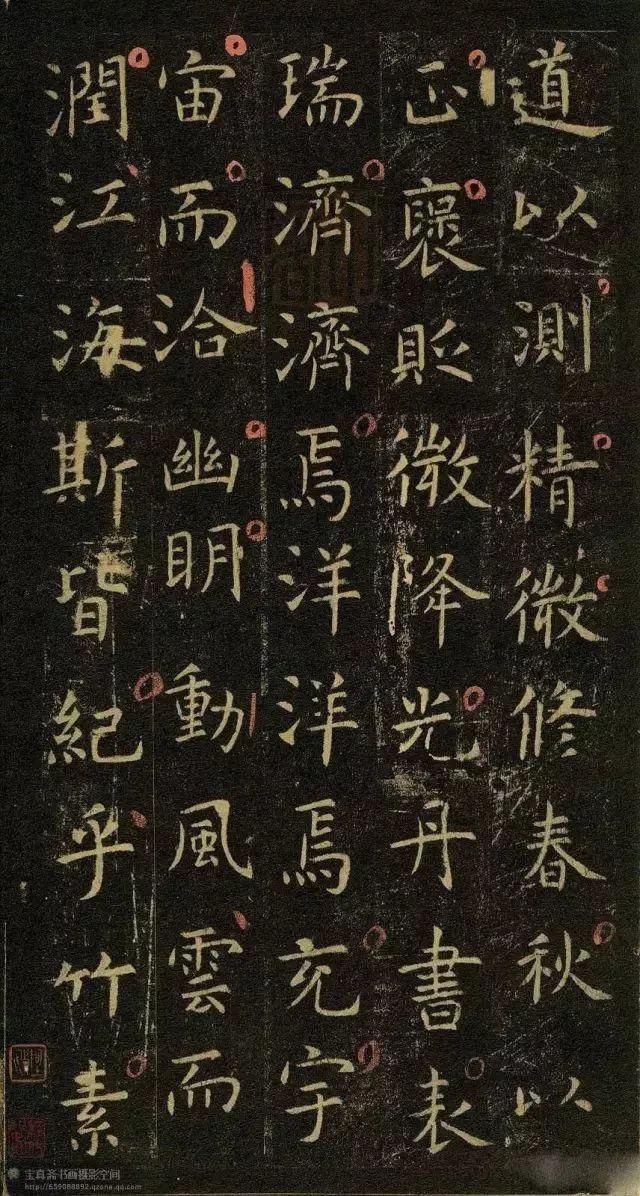 道以測精微修春秋以
正襃貶微降光丹書表
瑞濟濟焉洋洋焉充宇
宙而洽幽明動風雲而
潤江海斯皆紀乎竹素
宝真斋书画摄影空间
http://659088892.qzone.qq.com